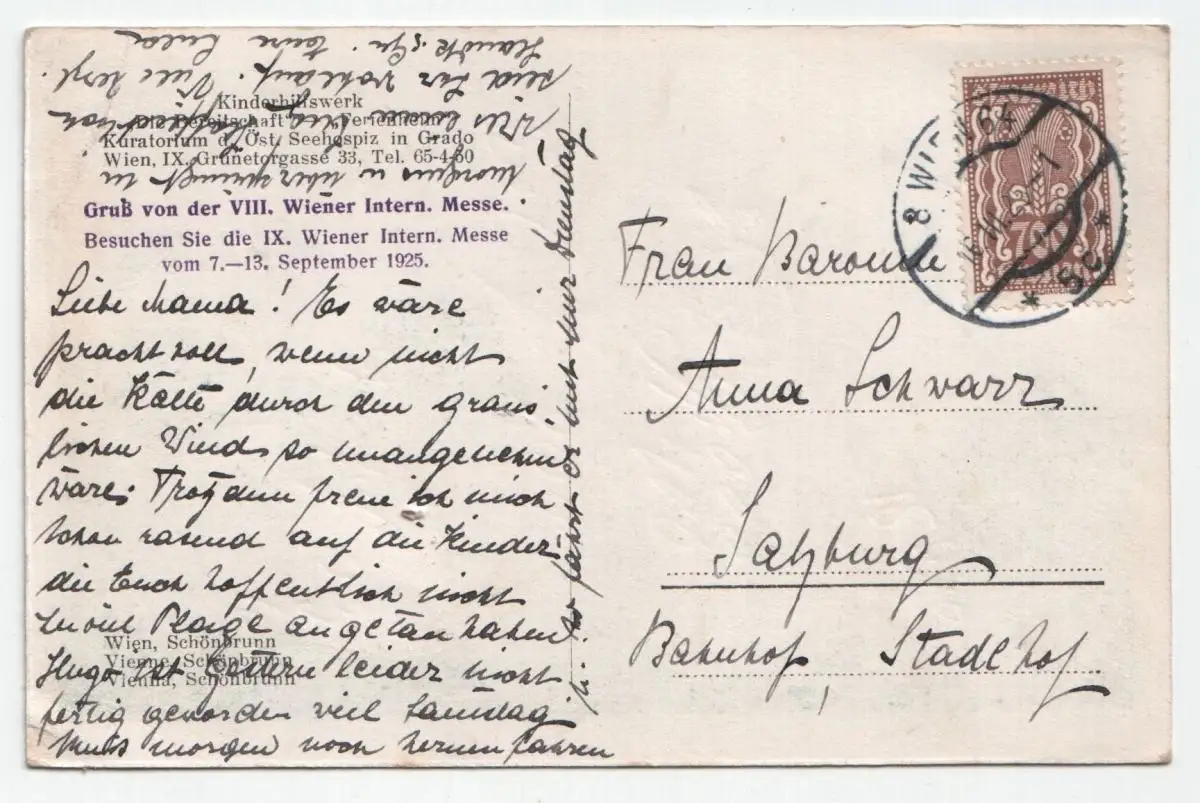 Kinderhilfswerk
Die Bereitschaft Ferienheim
Kuratorium d. Öst. Seehospiz in Grado
Wien, IX. Grünetorgasse 33, Tel. 65-4-60
Gruß von der VIII. Wiener Intern. Messe.
Besuchen Sie die IX. Wiener Intern. Messe
vom 7.—13. September 1925.
Liebe Mama! Es wäre
prachtvoll, wenn nicht
die Kälte durch den graus
lichen Wind so unangenehm
wäre. Trotzdem freue ich mich
schon rasend auf die Kinder
die Euch hoffentlich nicht
zuviel Plage angetan haben.
Hugo ist gestern leider nicht
fertig geworden weil Samstag
muss morgen noch fahren
u. so fährt er erst nur Dienstag
morgens u. übernimmt
Alles
seid Ihr wohlauf. Viele herzl.
Wien, Schönbrunn
Vienne, Schönbrunn
Vienna, Schönbrunn
8 WIEN 64
* 8c *
700
Frau Baronin
Anna Schwarz
Salzburg
Bahnhof, Stadlhof